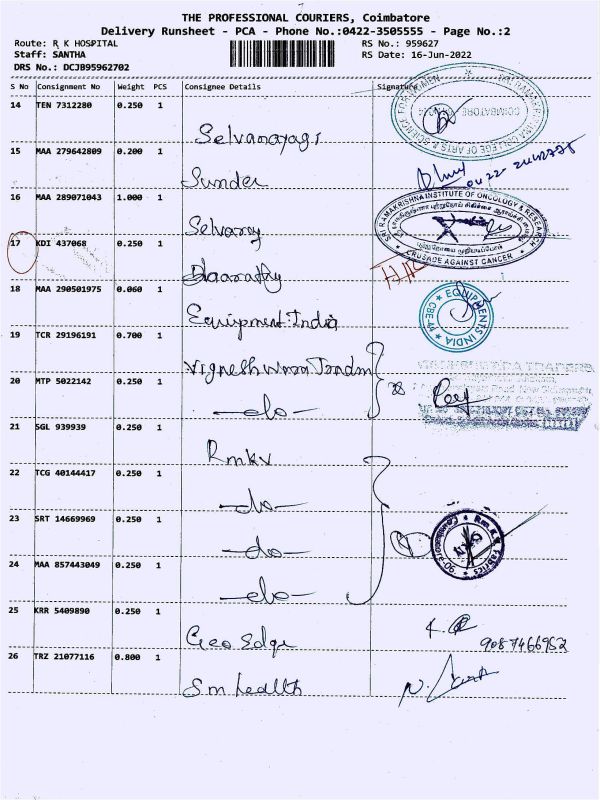 THE PROFESSIONAL COURIERS, Coimbatore
Delivery Runsheet - PCA - Phone No.:0422-3505555 - Page No.:2
Route: R K HOSPITAL RS No.: 959627
Staff: SANTHA RS Date: 16-Jun-2022
DRS No.: DCJB95962702
S No Consignment No Weight PCS Consignee Details Signature
14 TEN 7312280 0.250 1
Selvanayagi
COIMBATORE
15 MAA 279642809 0.200 1
Sunder
0422
16 MAA 289071043 1.000 1
Selvaraj
SRI RAMAKRISHNA INSTITUTE OF ONCOLOGY & RESEARCH
CRUSADE AGAINST CANCER
17 KDI 437068 0.250 1
18 MAA 290501975 0.060 1
Equipment India
EQUIPMENTS INDIA
CBE-44
19 TCR 29196191 0.700 1
20 MTP 5022142 0.250 1
-do-
21 SGL 939939 0.250 1
Rmkv
22 TCG 40144417 0.250 1
-do-
23 SRT 14669969 0.250 1
-do-
Fabrics
24 MAA 857443049 0.250 1
-do-
25 KRR 5409890 0.250 1
Geo Edge
9087466952
26 TRZ 21077116 0.800 1
Sm health